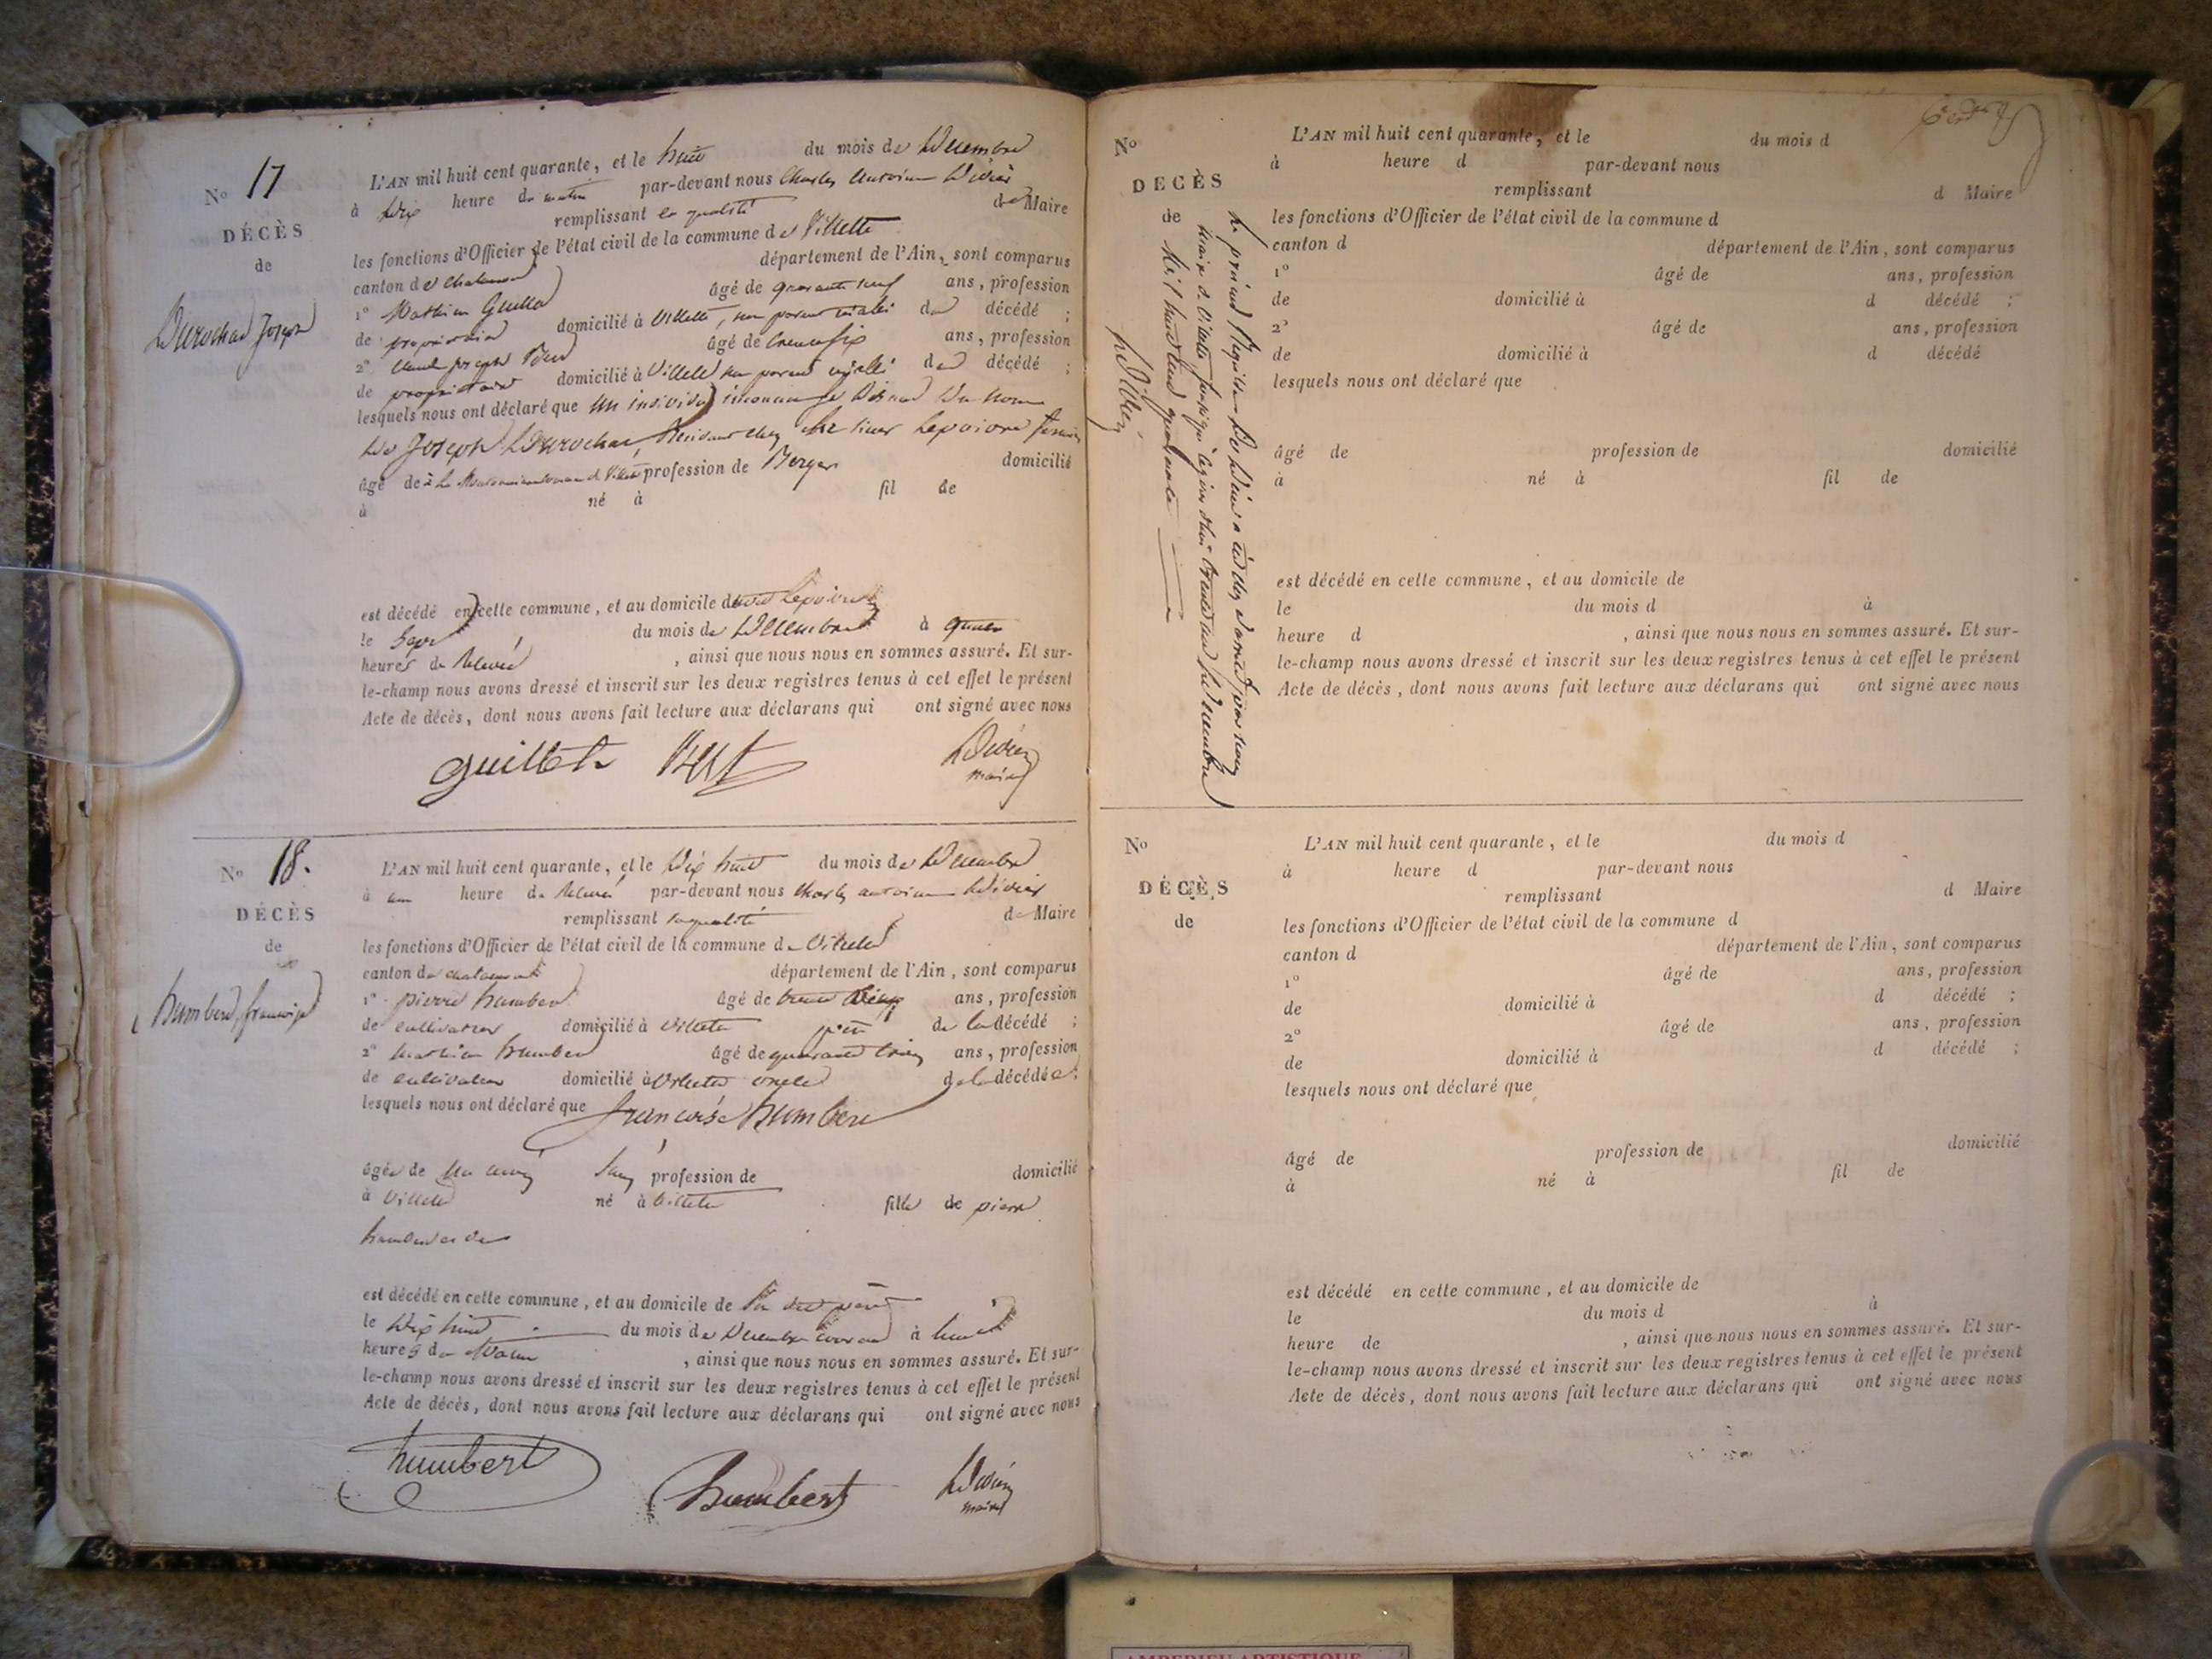 N° 17
DÉCÈS
de
Durochat Joseph
L'AN mil huit cent quarante, et le huit du mois de Décembre
à dix heure du matin par-devant nous Charles Antoine Didier
remplissant en qualité de Maire
les fonctions d'Officier de l'état civil de la commune de Villette
canton de Chalamont département de l'Ain, sont comparus
1° Mathieu Guillet âgé de quarante neuf ans, profession
de propriétaire domicilié à Villette, non parent ni allié du décédé ;
2° Claude Joseph âgé de trente six ans, profession
de propriétaire domicilié à Villette non parent ni allié du décédé ;
lesquels nous ont déclaré que un individu inconnu se disant du nom
de Joseph Durochat, résidant chez
âgé de profession de Berger domicilié
à né à fil de
est décédé en cette commune, et au domicile
le Sept du mois de Décembre à
heures de Relevée , ainsi que nous nous en sommes assuré. Et sur-
le-champ nous avons dressé et inscrit sur les deux registres tenus à cet effet le présent
Acte de décès, dont nous avons fait lecture aux déclarans qui ont signé avec nous
guillet Didier
maire
N° 18.
DÉCÈS
de
humbert françoise
L'AN mil huit cent quarante, et le Dix huit du mois de Décembre
à un heure de Relevée par-devant nous Charles antoine Didier
remplissant en qualité de Maire
les fonctions d'Officier de l'état civil de la commune de Villette
canton de chalamont département de l'Ain, sont comparus
1° pierre humbert âgé de trente ans, profession
de cultivateur domicilié à Villette père de la décédé ;
2° mathieu humbert âgé de quarante ans, profession
de cultivateur domicilié à Villette oncle de la décédée ;
lesquels nous ont déclaré que françoise humbert
âgée de profession de domicilié
à Villette né à Villette fille de pierre
humbert et de
est décédé en cette commune, et au domicile de son dit père
le Dix huit du mois de Décembre courant à huit
heures du Matin , ainsi que nous nous en sommes assuré. Et sur-
le-champ nous avons dressé et inscrit sur les deux registres tenus à cet effet le présent
Acte de décès, dont nous avons fait lecture aux déclarans qui ont signé avec nous
humbert humbert Didier
maire
N°
DÉCÈS
de
Le présent Registre des Décès a été clos et arrêté par nous
maire de Villette
Mil huit Cent quarante
Didier
L'AN mil huit cent quarante, et le du mois d
à heure d par-devant nous
remplissant d Maire
les fonctions d'Officier de l'état civil de la commune d
canton d département de l'Ain, sont comparus
1° âgé de ans, profession
de domicilié à d décédé ;
2° âgé de ans, profession
de domicilié à d décédé
lesquels nous ont déclaré que
âgé de profession de domicilié
à né à fil de
est décédé en cette commune, et au domicile de
le du mois d à
heure d , ainsi que nous nous en sommes assuré. Et sur-
le-champ nous avons dressé et inscrit sur les deux registres tenus à cet effet le présent
Acte de décès, dont nous avons fait lecture aux déclarans qui ont signé avec nous
N°
DÉCÈS
de
L'AN mil huit cent quarante, et le du mois d
à heure d par-devant nous
remplissant d Maire
les fonctions d'Officier de l'état civil de la commune d
canton d département de l'Ain, sont comparus
1° âgé de ans, profession
de domicilié à d décédé ;
2° âgé de ans, profession
de domicilié à d décédé ;
lesquels nous ont déclaré que
âgé de profession de domicilié
à né à fil de
est décédé en cette commune, et au domicile de
le du mois d à
heure de , ainsi que nous nous en sommes assuré. Et sur-
le-champ nous avons dressé et inscrit sur les deux registres tenus à cet effet le présent
Acte de décès, dont nous avons fait lecture aux déclarans qui ont signé avec nous